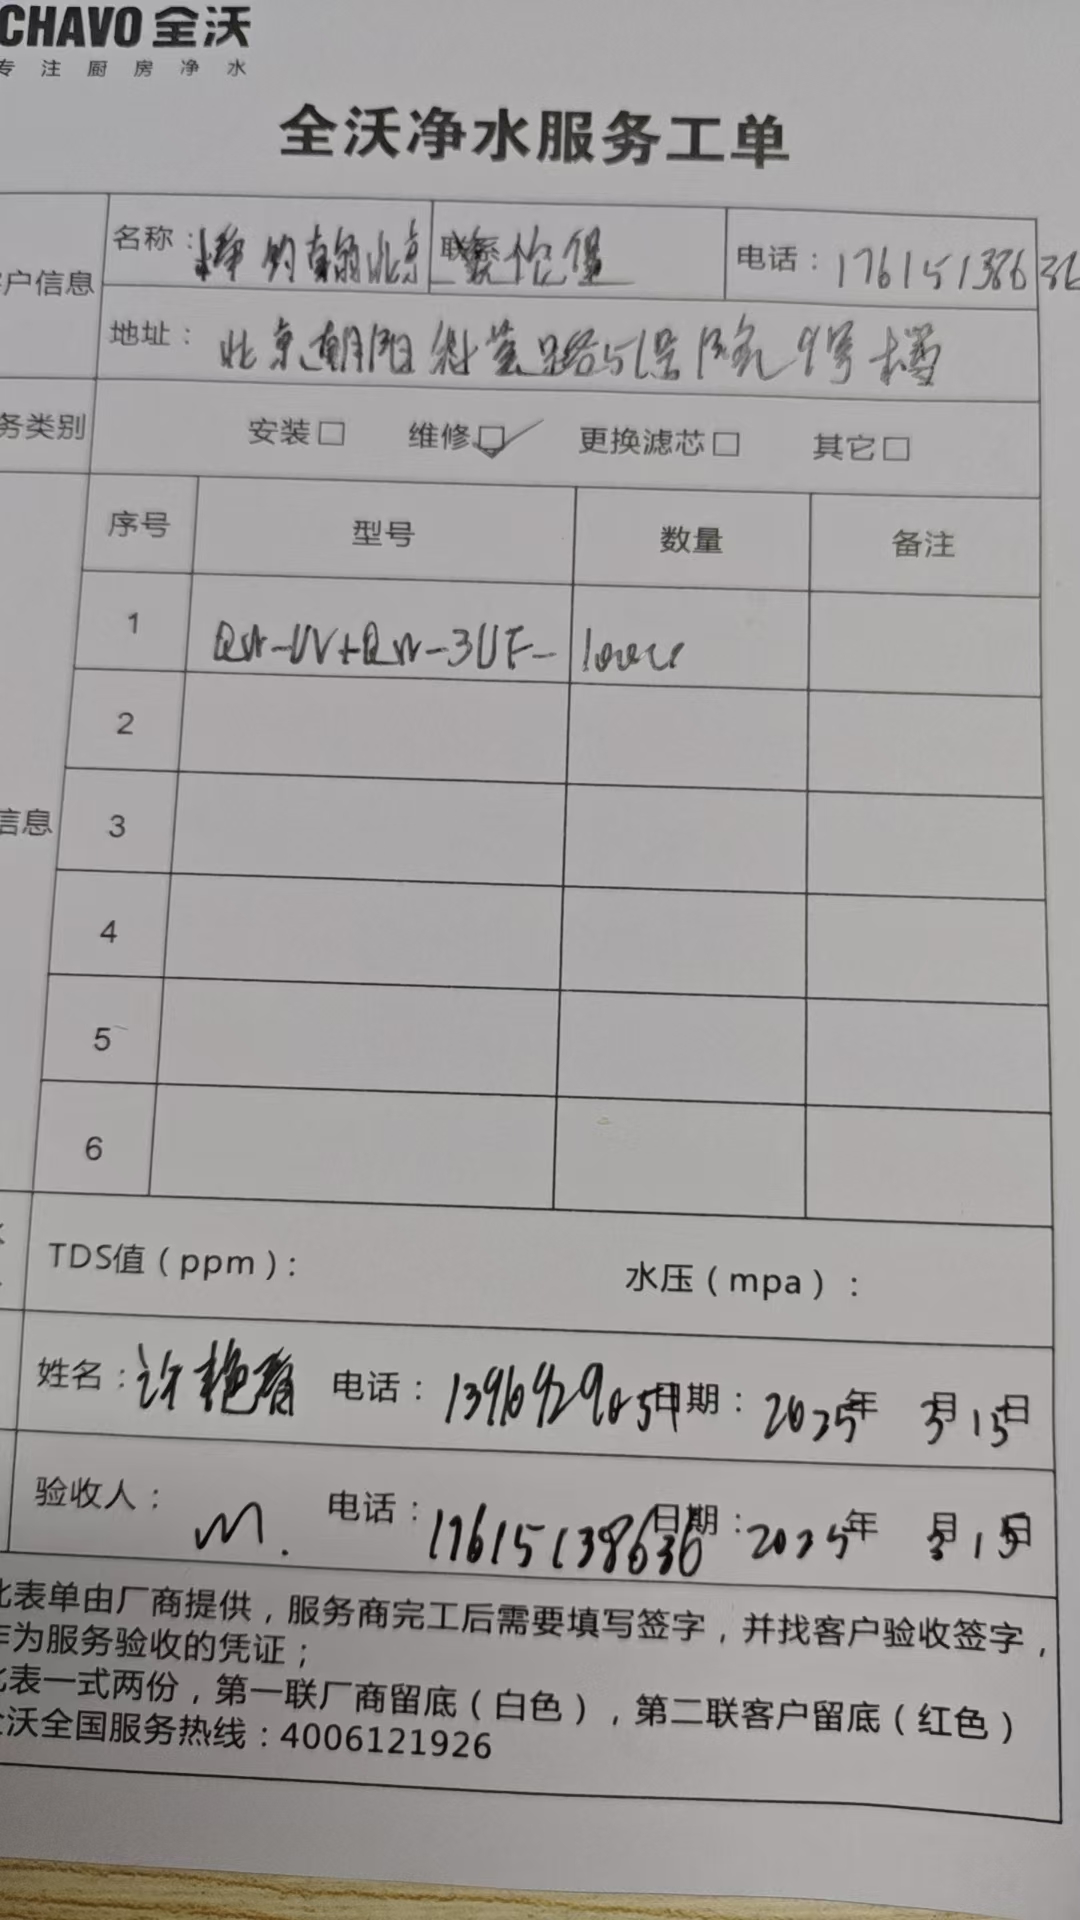 CHAVO 全沃
专注厨房净水
全沃净水服务工单
户信息
名称： 北京 联系 电话：17615138636
地址： 北京朝阳科荟路51号院9号楼
务类别 安装□ 维修☑ 更换滤芯□ 其它□
序号 型号 数量 备注
1 QW-UV+QW-3UF- 
2
信息 3
4
5
6
TDS值（ppm）： 水压（mpa）：
姓名：许艳春 电话： 日期：2025年3月15日
验收人： 电话：17615138636 日期：2025年3月15日
此表单由厂商提供，服务商完工后需要填写签字，并找客户验收签字，
作为服务验收的凭证；
此表一式两份，第一联厂商留底（白色），第二联客户留底（红色）
全沃全国服务热线：4006121926